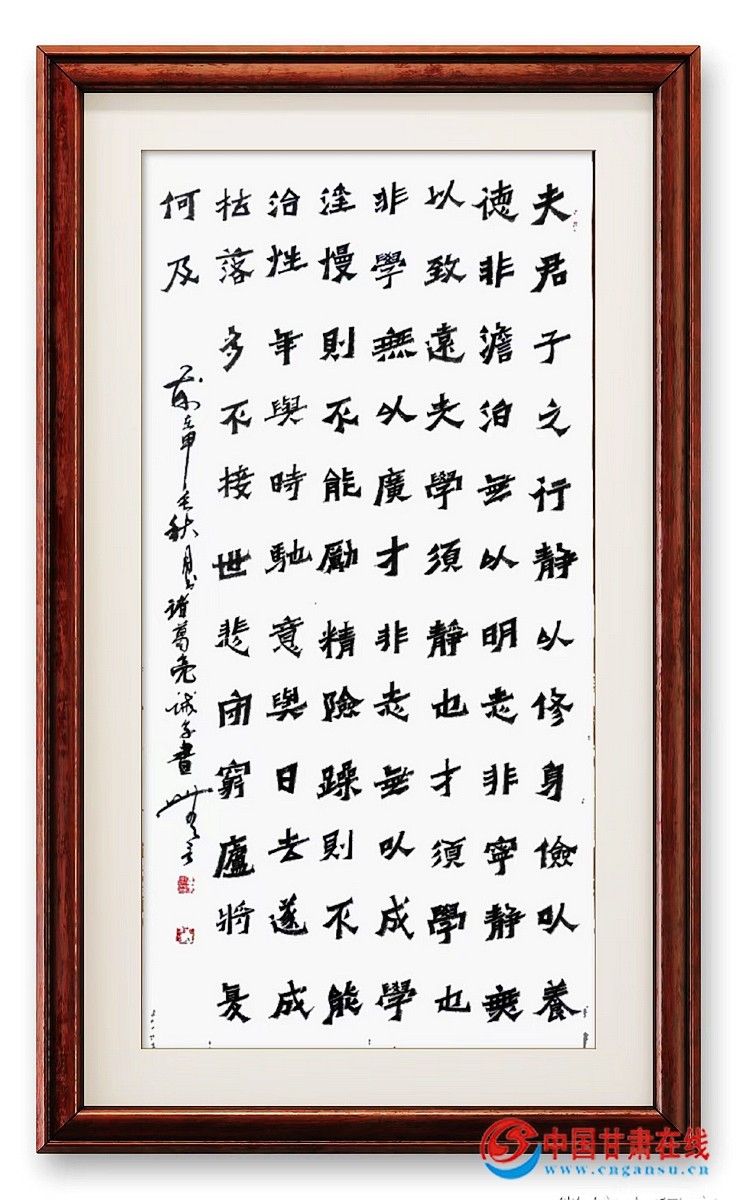 夫君子之行靜以修身儉以養
德非澹泊無以明志非寧靜無
以致遠夫學須靜也才須學也
非學無以廣才非志無以成學
淫慢則不能勵精險躁則不能
治性年與時馳意與日去遂成
枯落多不接世悲守窮廬將复
何及
歲在甲辰秋月书諸葛亮诫子書
中国甘肃在线
www.cngansu.cn